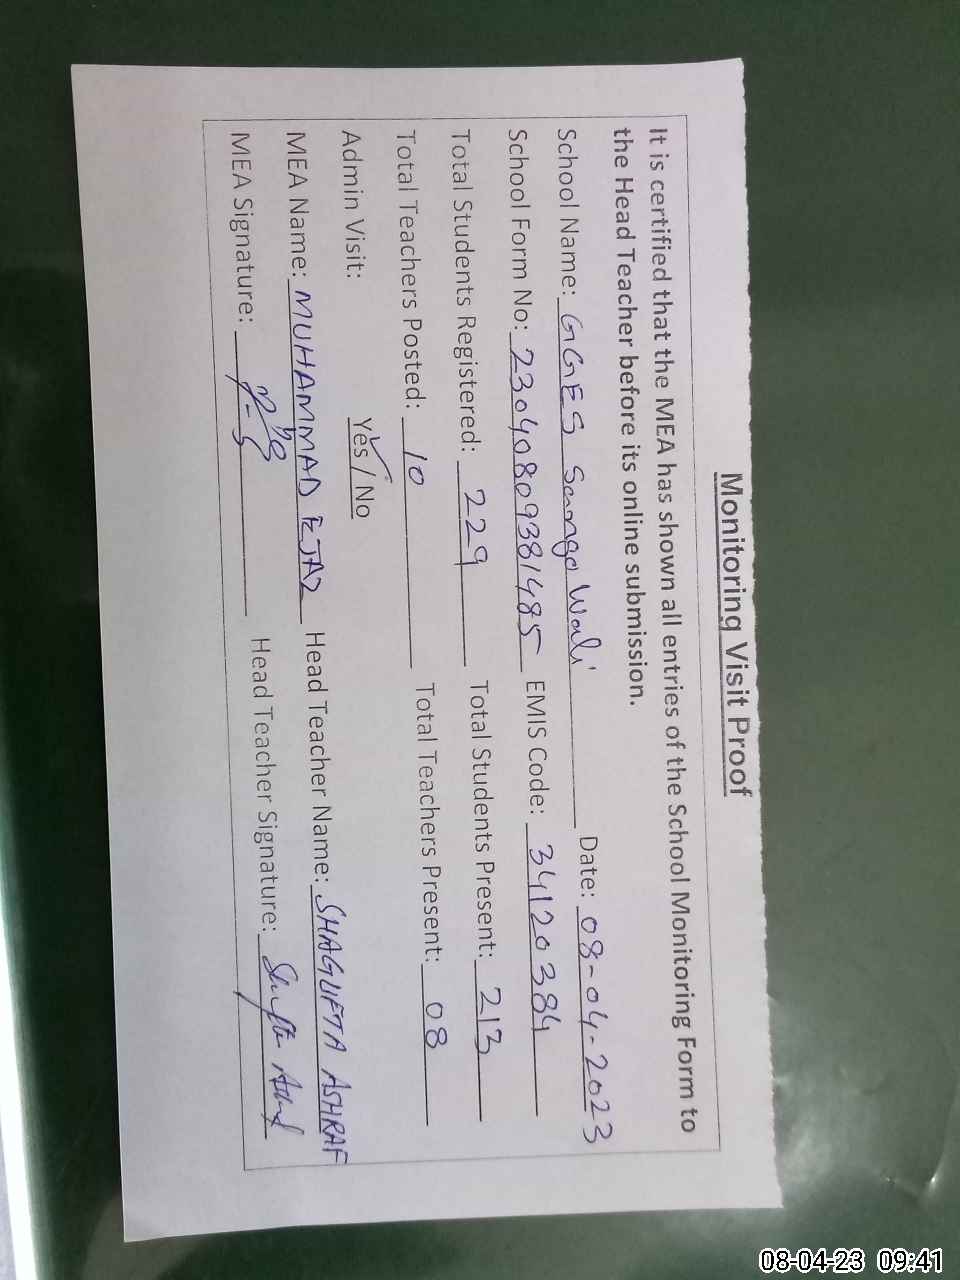 Monitoring Visit Proof
It is certified that the MEA has shown all entries of the School Monitoring Form to
the Head Teacher before its online submission.
School Name: GGES Sango Wali Date: 08-04-2023
School Form No: 23040809381485 EMIS Code: 34120384
Total Students Registered: 229 Total Students Present: 213
Total Teachers Posted: 10 Total Teachers Present: 08
Admin Visit: Yes / No
MEA Name: MUHAMMAD EJAZ Head Teacher Name: SHAGUFTA ASHRAF
MEA Signature: Head Teacher Signature:
08-04-23 09:41